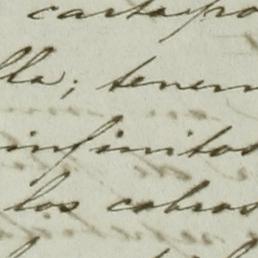 carta po
lla; tenem
infinitos
los cobras